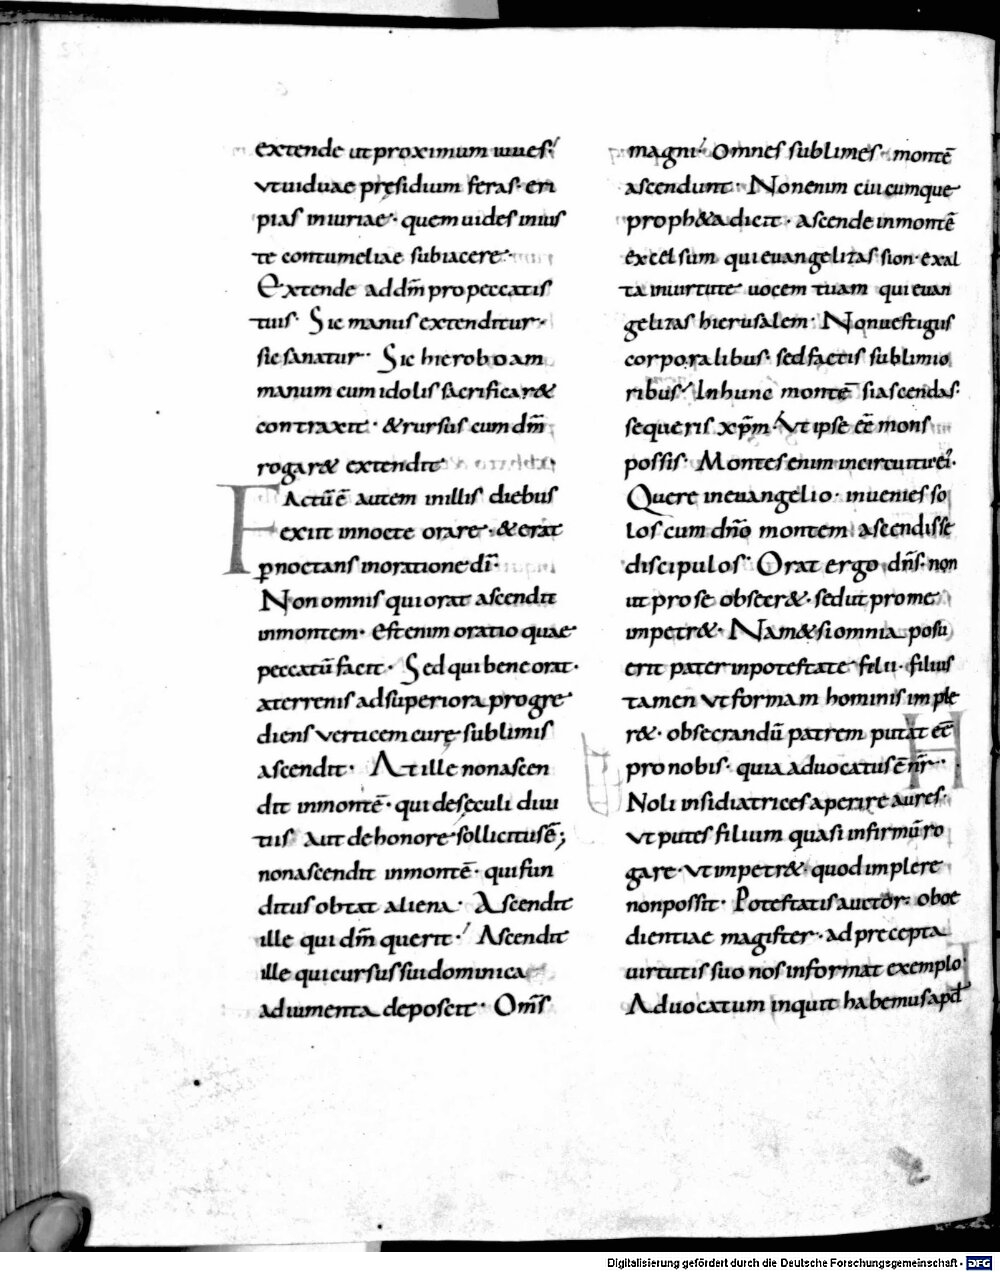 extende ut proximum iuues!
vt uiduae pręsidium feras· eri
pias iniuriae· quem uides inius
te contumeliae subiacere·
Extende ad dm̄ pro peccatis
tuis· Sic manus extenditur·
sic sanatur· Sic hieroboam
manum cum idolis sacrificar&
contraxit· & rursus cum dm̄
rogar& extendit
Factū ē autem in illis diebus
exiit in nocte orare· & erat
ꝑnoctans in oratione dī·
Non omnis qui orat ascendit
in montem· Est enim oratio quae
peccatū facit· Sed qui bene orat·
a terrenis ad superiora progre
diens verticem curę sublimis
ascendit· At ille non ascen
dit in montē· qui de sęculi diui
tiis aut de honore sollicitus ē;
non ascendit in montē· qui fun
ditus obtat aliena· Ascendit
ille qui dm̄ querit· Ascendit
ille qui cursus sui dominica
adiumenta deposcit· Om̄s
magni· Omnes sublimes· montē
ascendunt· Non enim cuicumque
proph&a dicit· ascende in montē
excelsum qui euangelizas sion· exal
ta in uirtute uocem tuam qui euan
gelizas hierusalem· Non uestigiis
corporalibus· sed factis sublimio
ribus· In hunc montē si ascendas·
sequeris xp̄m· Vt ipse eē mons
possis· Montes enim in circuitu ei·
Quere in euangelio· inuenies so
los cum dn̄o montem ascendisse
discipulos· Orat ergo dn̄s· non
ut pro se obsecr&· sed ut pro me
impetr&· Nam & si omnia posu
erit pater in potestate filii· filius
tamen vt formam hominis imple
r&· obsecrandū patrem putat eē
pro nobis· quia aduocatus ē nr̄·
Noli insidiatrices aperire aures·
vt putes filium quasi infirmū ro
gare· vt impetr& quod implere
non possit· Potestatis auctor· oboe
dientiae magister· ad precepta
uirtutis suo nos informat exemplo·
Aduocatum inquit habemus apd̄
Digitalisierung gefördert durch die Deutsche Forschungsgemeinschaft - DFG